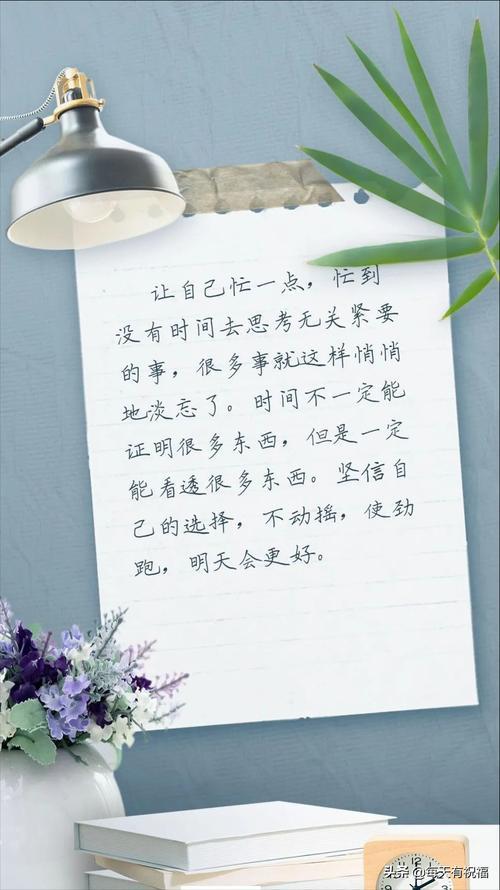 让自己忙一点，忙到
没有时间去思考无关紧要
的事，很多事就这样悄悄
地淡忘了。时间不一定能
证明很多东西，但是一定
能看透很多东西。坚信自
己的选择，不动摇，使劲
跑，明天会更好。
头条@每天有祝福